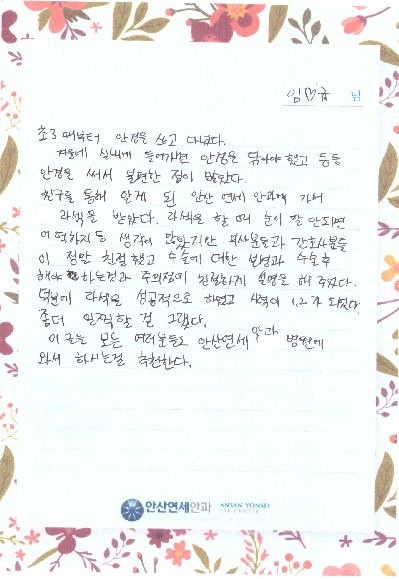 임♡규 님
초3때부터 안경을 쓰고 다녔다.
겨울에 실내에 들어가면 안경을 닦아야 했고 등등
안경을 써서 불편한 점이 많았다.
친구를 통해 알게 된 안산 연세 안과에 가서
라섹을 받았다. 라섹을 할 때 눈이 잘 안되면
어떡하지 등 생각이 많았지만 의사분들과 간호사분들
이 정말 친절했고 수술에 대한 설명과 수술후
해야 하는것과 주의점이 친절하게 설명을 해 주셨다.
덕분에 라섹을 성공적으로 하였고 시력이 1.2가 되었다.
좀더 일찍할 걸 그랬다.
이 글을 보는 여러분들도 안산연세안과 병원에
와서 하시는걸 추천한다.
안산연세안과
ANSAN YONSEI
EYE CENTER